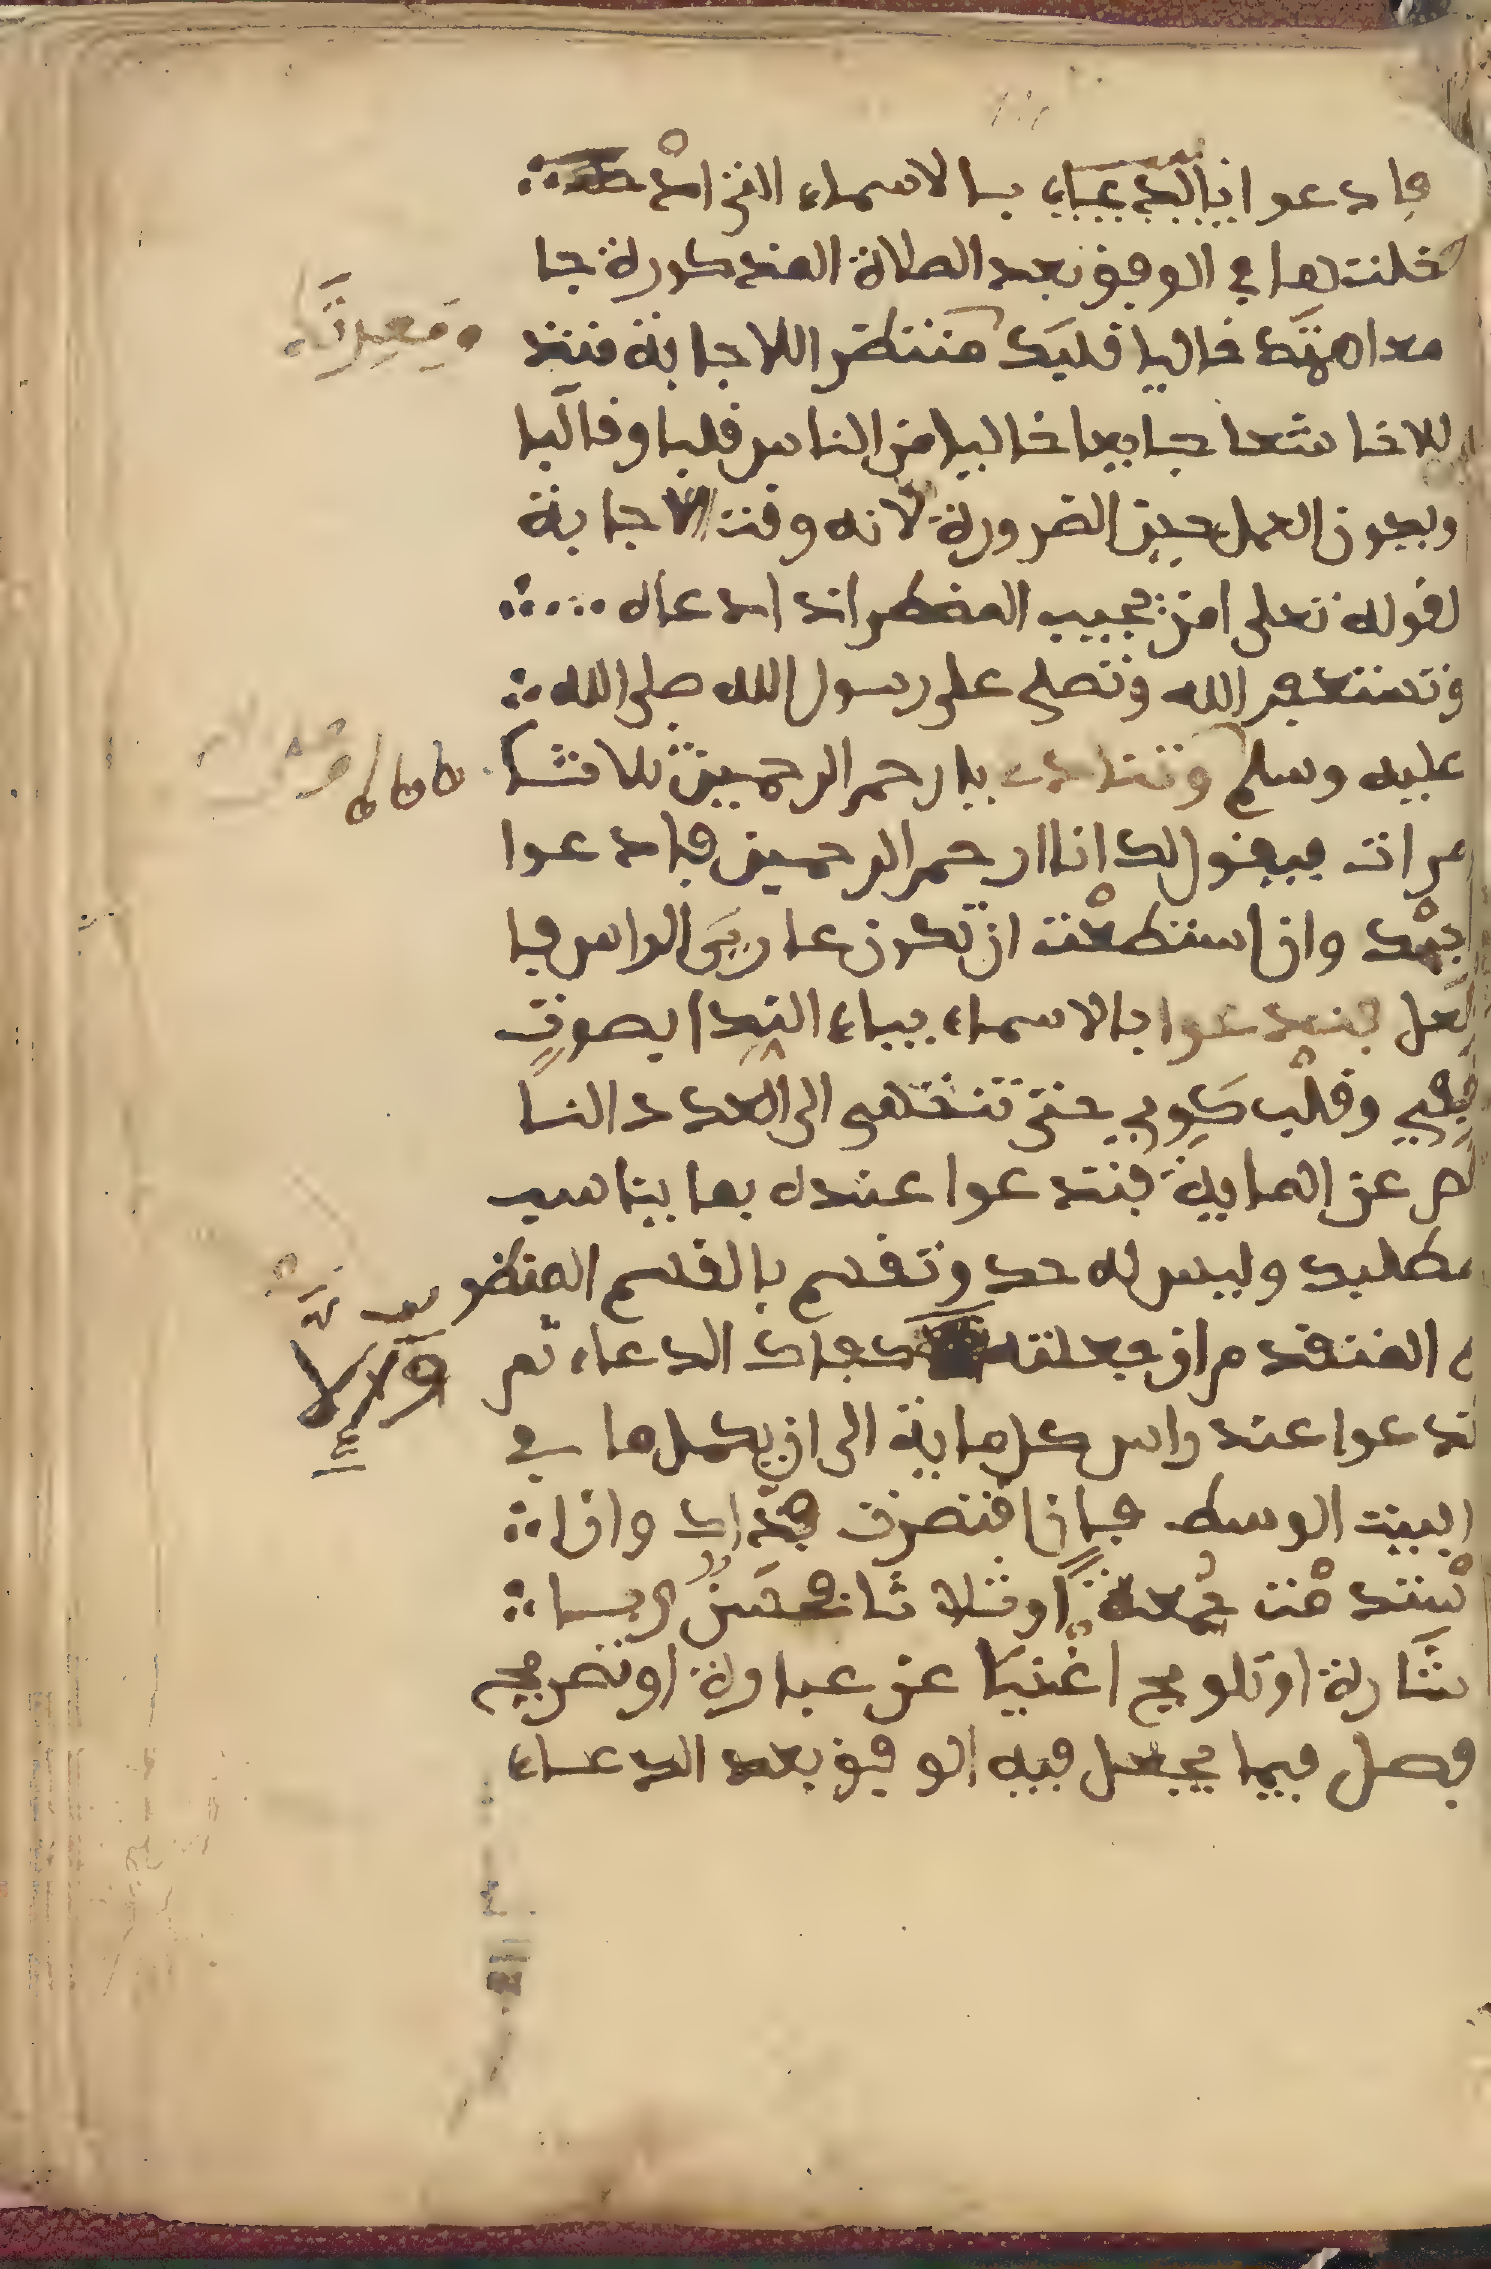 فادعوا بالدعاء بالاسماء التى ادخـ
خلتها في الوفق بعد الصلاة المذكورة جا
معا همتك خاليا قلبك منتظرا للاجابة متذ
للا خاشعا جايعا خاليا من الناس قلبا وقالبا
ويكون العمل حين الضرورة لانه وقت الاجابة
لقوله تعلى امن يجيب المضطر اذا دعاه
وتستغفر الله وتصلى على رسول الله صلى الله
عليه وسلم وتنادى يا ارحم الرحمين ثلاثا
مرات فيقول لك انا ارحم الرحمين فادعوا
بيك وان استطعت ان تكون عاري الراس فا
فعل فتدعوا بالاسماء بياء الندا بصوت
خفي وقلب كوي حتى تنتهى الى العدد النا
قص عن الماية فتدعوا عنده بما يناسب
مطلبك وليس له حد وتقسم بالقسم المنظوم
المتقدم ان جعلته دعاك الدعاء ثم
تدعوا عند راس كل ماية الى ان يكمل ما في
البيت الوسط فان انتصرت فذاك وان
جمعة او ثلاثا
شارة او تلويح اغنيا عن عبارة او تصريح
فصل فيما يجعل فيه الوفق بعد الدعاء